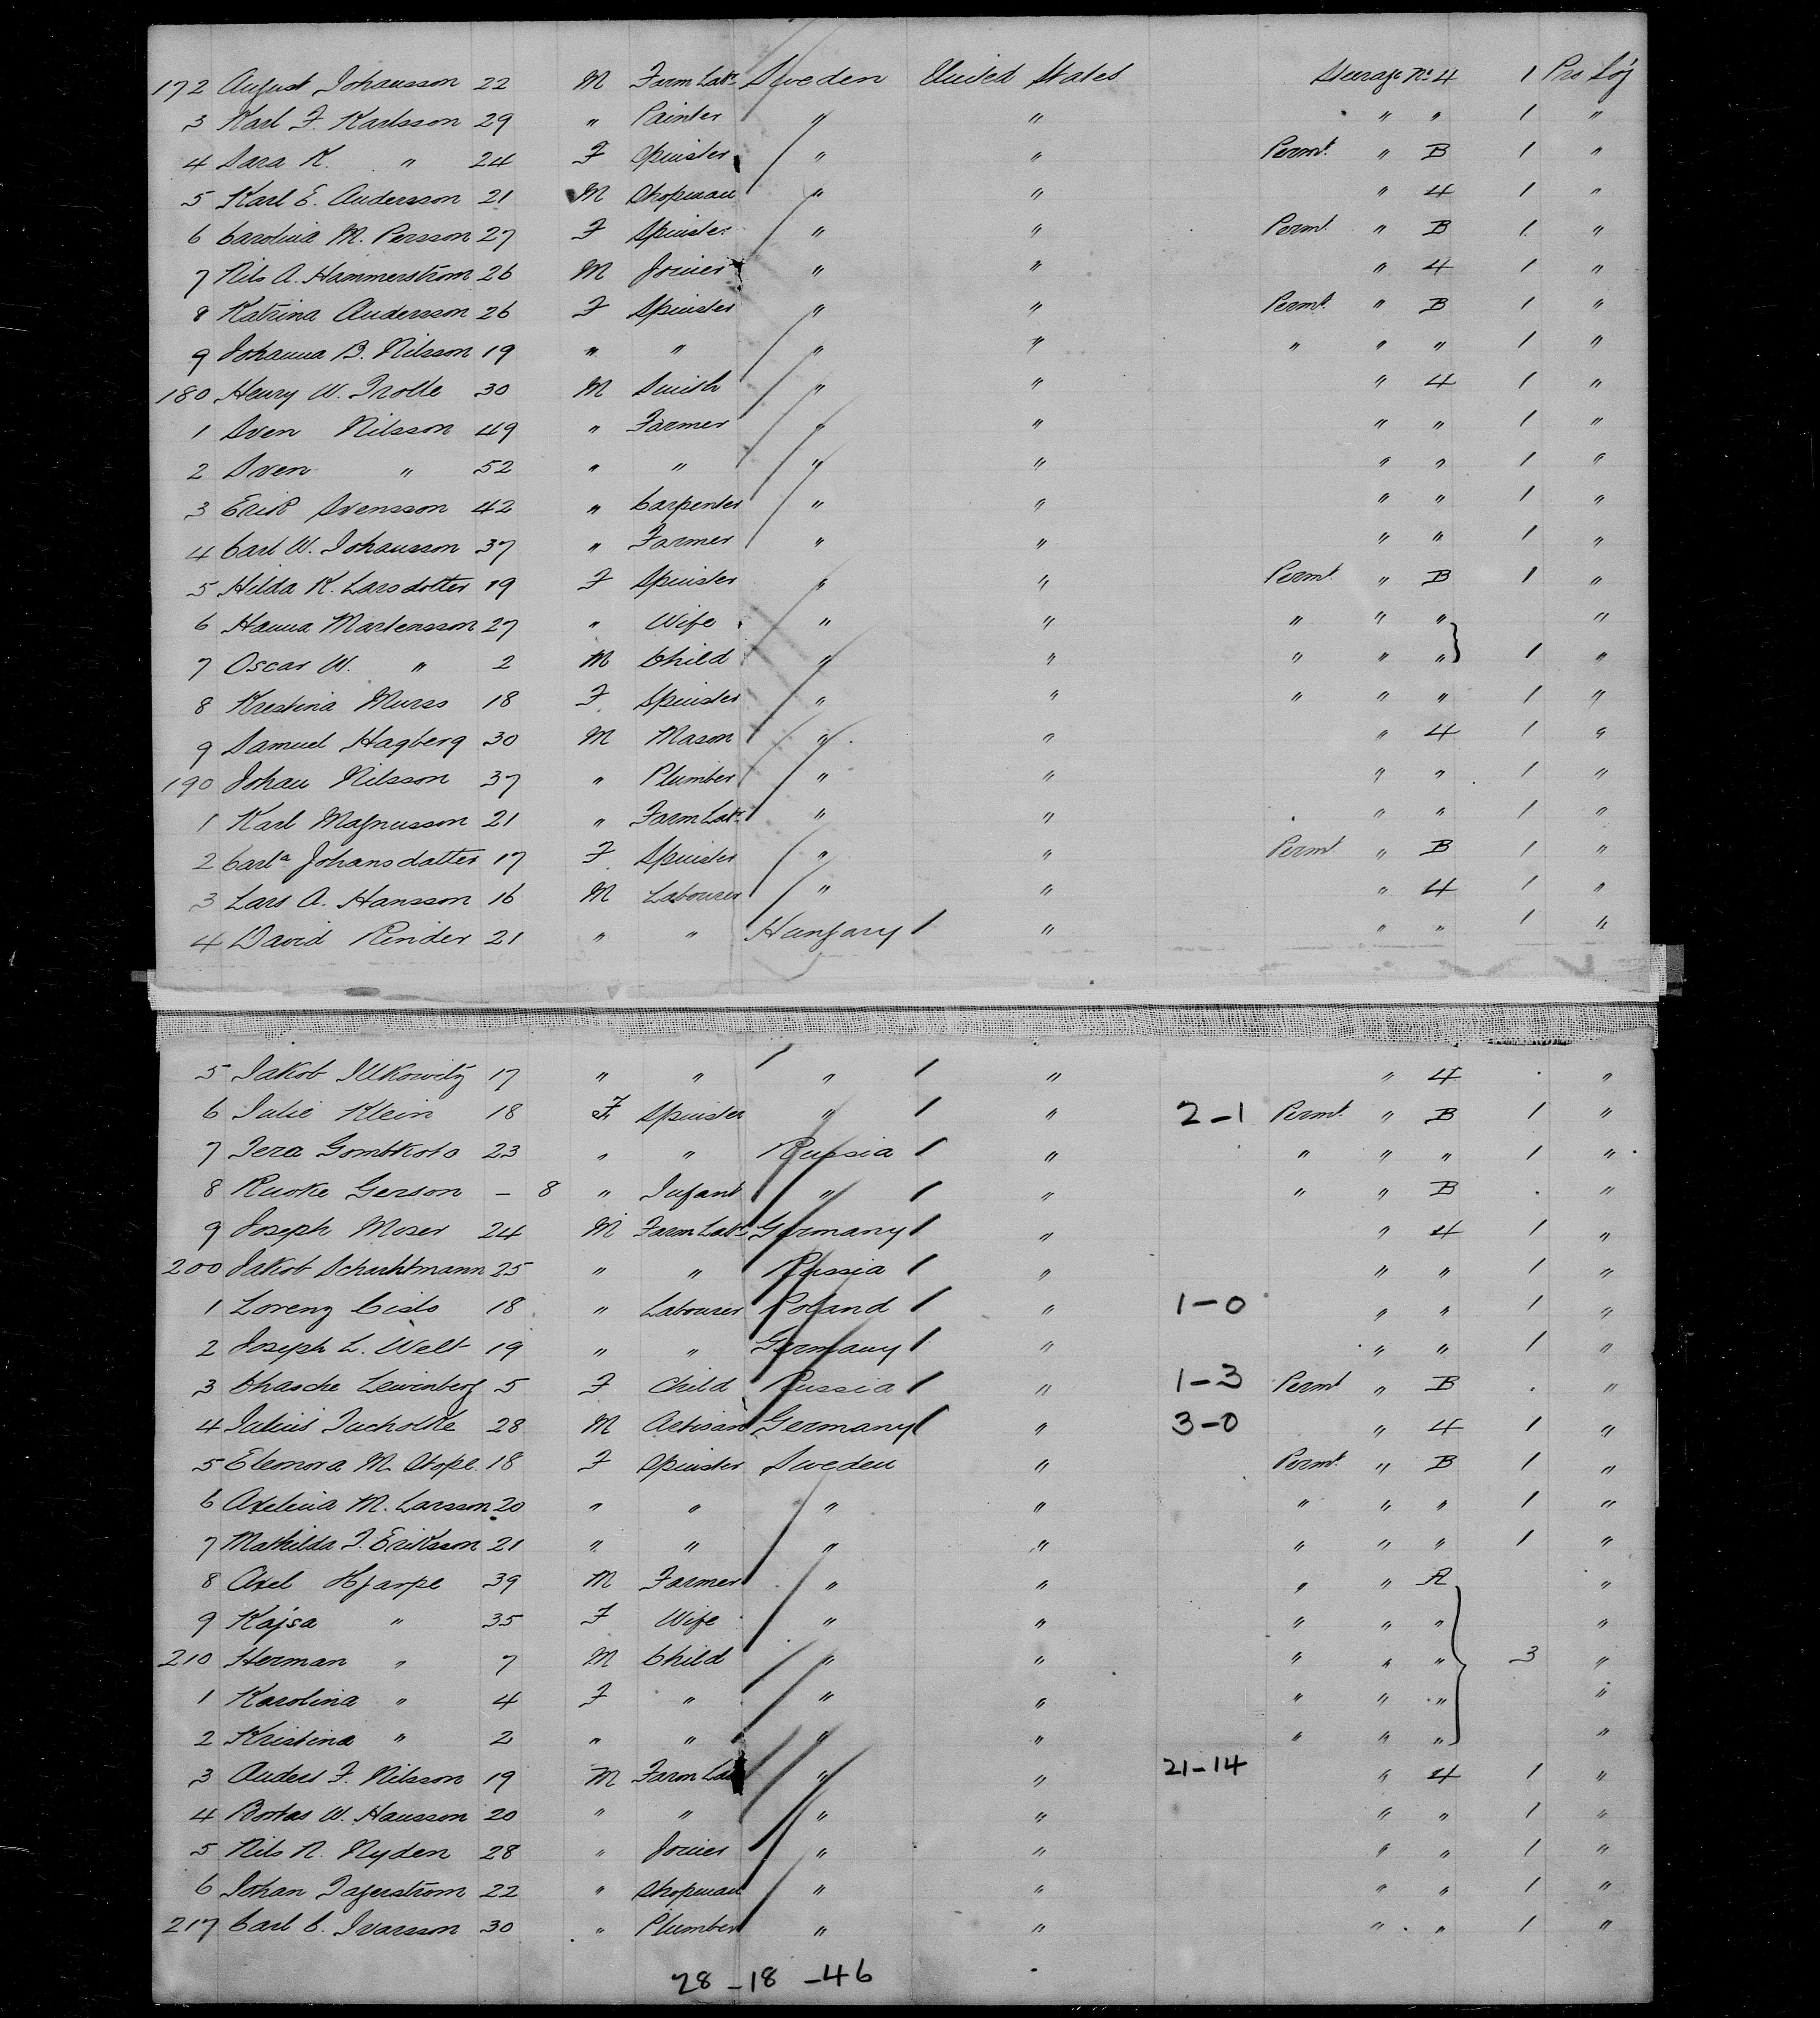 172 August Johansson 22 M Farm Labr Sweden United States Steerage No 4 1 Pro Log
3 Karl F. Karlsson 29 " Painter " " " " 1 "
4 Sara K. " 24 F Spinster " " Permt. " B 1 "
5 Karl E. Andersson 21 M Shopman " " " 4 1 "
6 Carolina M. Persson 27 F Spinster " " Permt. " B 1 "
7 Nils A. Hammerström 26 M Joiner " " " 4 1 "
8 Katrina Andersson 26 F Spinster " " Permt. " B 1 "
9 Johanna B. Nilsson 19 " " " " " " " 1 "
180 Henry W. Trolle 30 M Smith " " " 4 1 "
1 Sven Nilsson 49 " Farmer " " " " 1 "
2 Sven " 52 " " " " " " 1 "
3 Erik Svensson 42 " Carpenter " " " " 1 "
4 Carl W. Johansson 37 " Farmer " " " " 1 "
5 Hilda K. Larsdotter 19 F Spinster " " Permt. " B 1 "
6 Hanna Martensson 27 " Wife " " " " " "
7 Oscar W. " 2 M Child " " " " " 1 "
8 Krestina Murss 18 F Spinster " " " " " 1 "
9 Samuel Hagberg 30 M Mason " " " 4 1 "
190 Johan Nilsson 37 " Plumber " " " " 1 "
1 Karl Magnusson 21 " Farm Labr " " " " 1 "
2 Carla Johansdatter 17 F Spinster " " Permt. " B 1 "
3 Lars A. Hansson 16 M Labourer " " " 4 1 "
4 David Rinder 21 " " Hungary " " " 1 "
5 Jakob Illkowitz 17 " " " " " 4 "
6 Julie Klein 18 F Spinster " " 2-1 Permt. " B 1 "
7 Tera Gombkoto 23 " " Russia " " " " 1 "
8 Ruoke Gerson - 8 " Infant " " " " B "
9 Joseph Moser 24 M Farm Labr Germany " " 4 1 "
200 Jakob Schachtmann 25 " " Russia " " " 1 "
1 Lorenz Cislo 18 " Labourer Poland " 1-0 " " 1 "
2 Joseph L. Welt 19 " " Germany " " " 1 "
3 Chasche Lewinberg 5 F Child Russia " 1-3 Permt " B "
4 Julius Tucholke 28 M Artisan Germany " 3-0 " 4 1 "
5 Eleonora M. Stope 18 F Spinster Sweden " Permt. " B 1 "
6 Axelina M. Larsson 20 " " " " " " " 1 "
7 Mathilda J. Eriksson 21 " " " " " " " 1 "
8 Axel Hjarpe 39 M Farmer " " " " A "
9 Kajsa " 35 F Wife " " " " " "
210 Herman " 7 M Child " " " " " 3 "
1 Karolina " 4 F " " " " " " "
2 Kristina " 2 " " " " " " " "
3 Anders F. Nilsson 19 M Farm Labr " " 21-14 " 4 1 "
4 W. Hansson 20 " " " " " " 1 "
5 Nils N. Nyden 28 " Joiner " " " " 1 "
6 Johan Tagerstrom 22 " Shopman " " " " 1 "
217 Carl C. Ivarsson 30 " Plumber " " " " 1 "
28-18-46